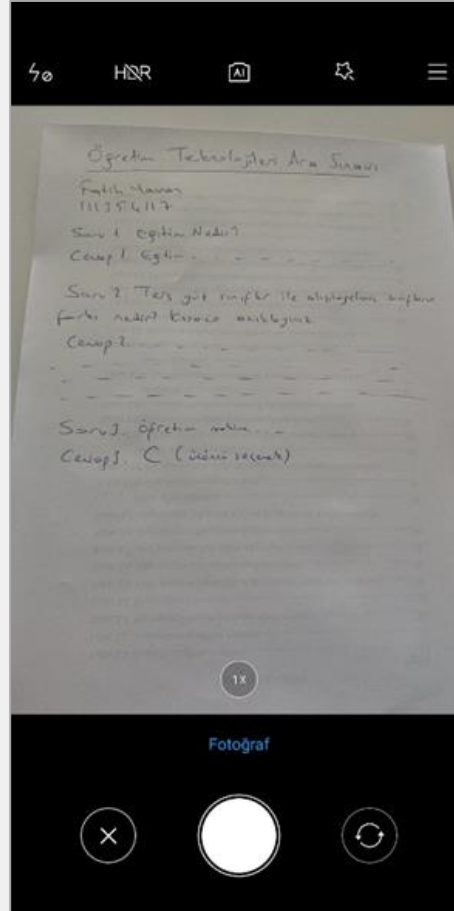 HDR
AI
Öğretim Teknolojileri Ara Sınavı
Fatih
111354117
Soru 1. Eğitim Nedir?
Cevap 1. Eğitim. . . . . . . .
Soru 2. Ters yüz sınıflar ile alışılagelmiş sınıfların
farkı nedir? Kısaca açıklayınız
Cevap 2. . . .
Soru 3. Öğretim . . .
Cevap 3. C (üçüncü seçenek)
1X
Fotoğraf